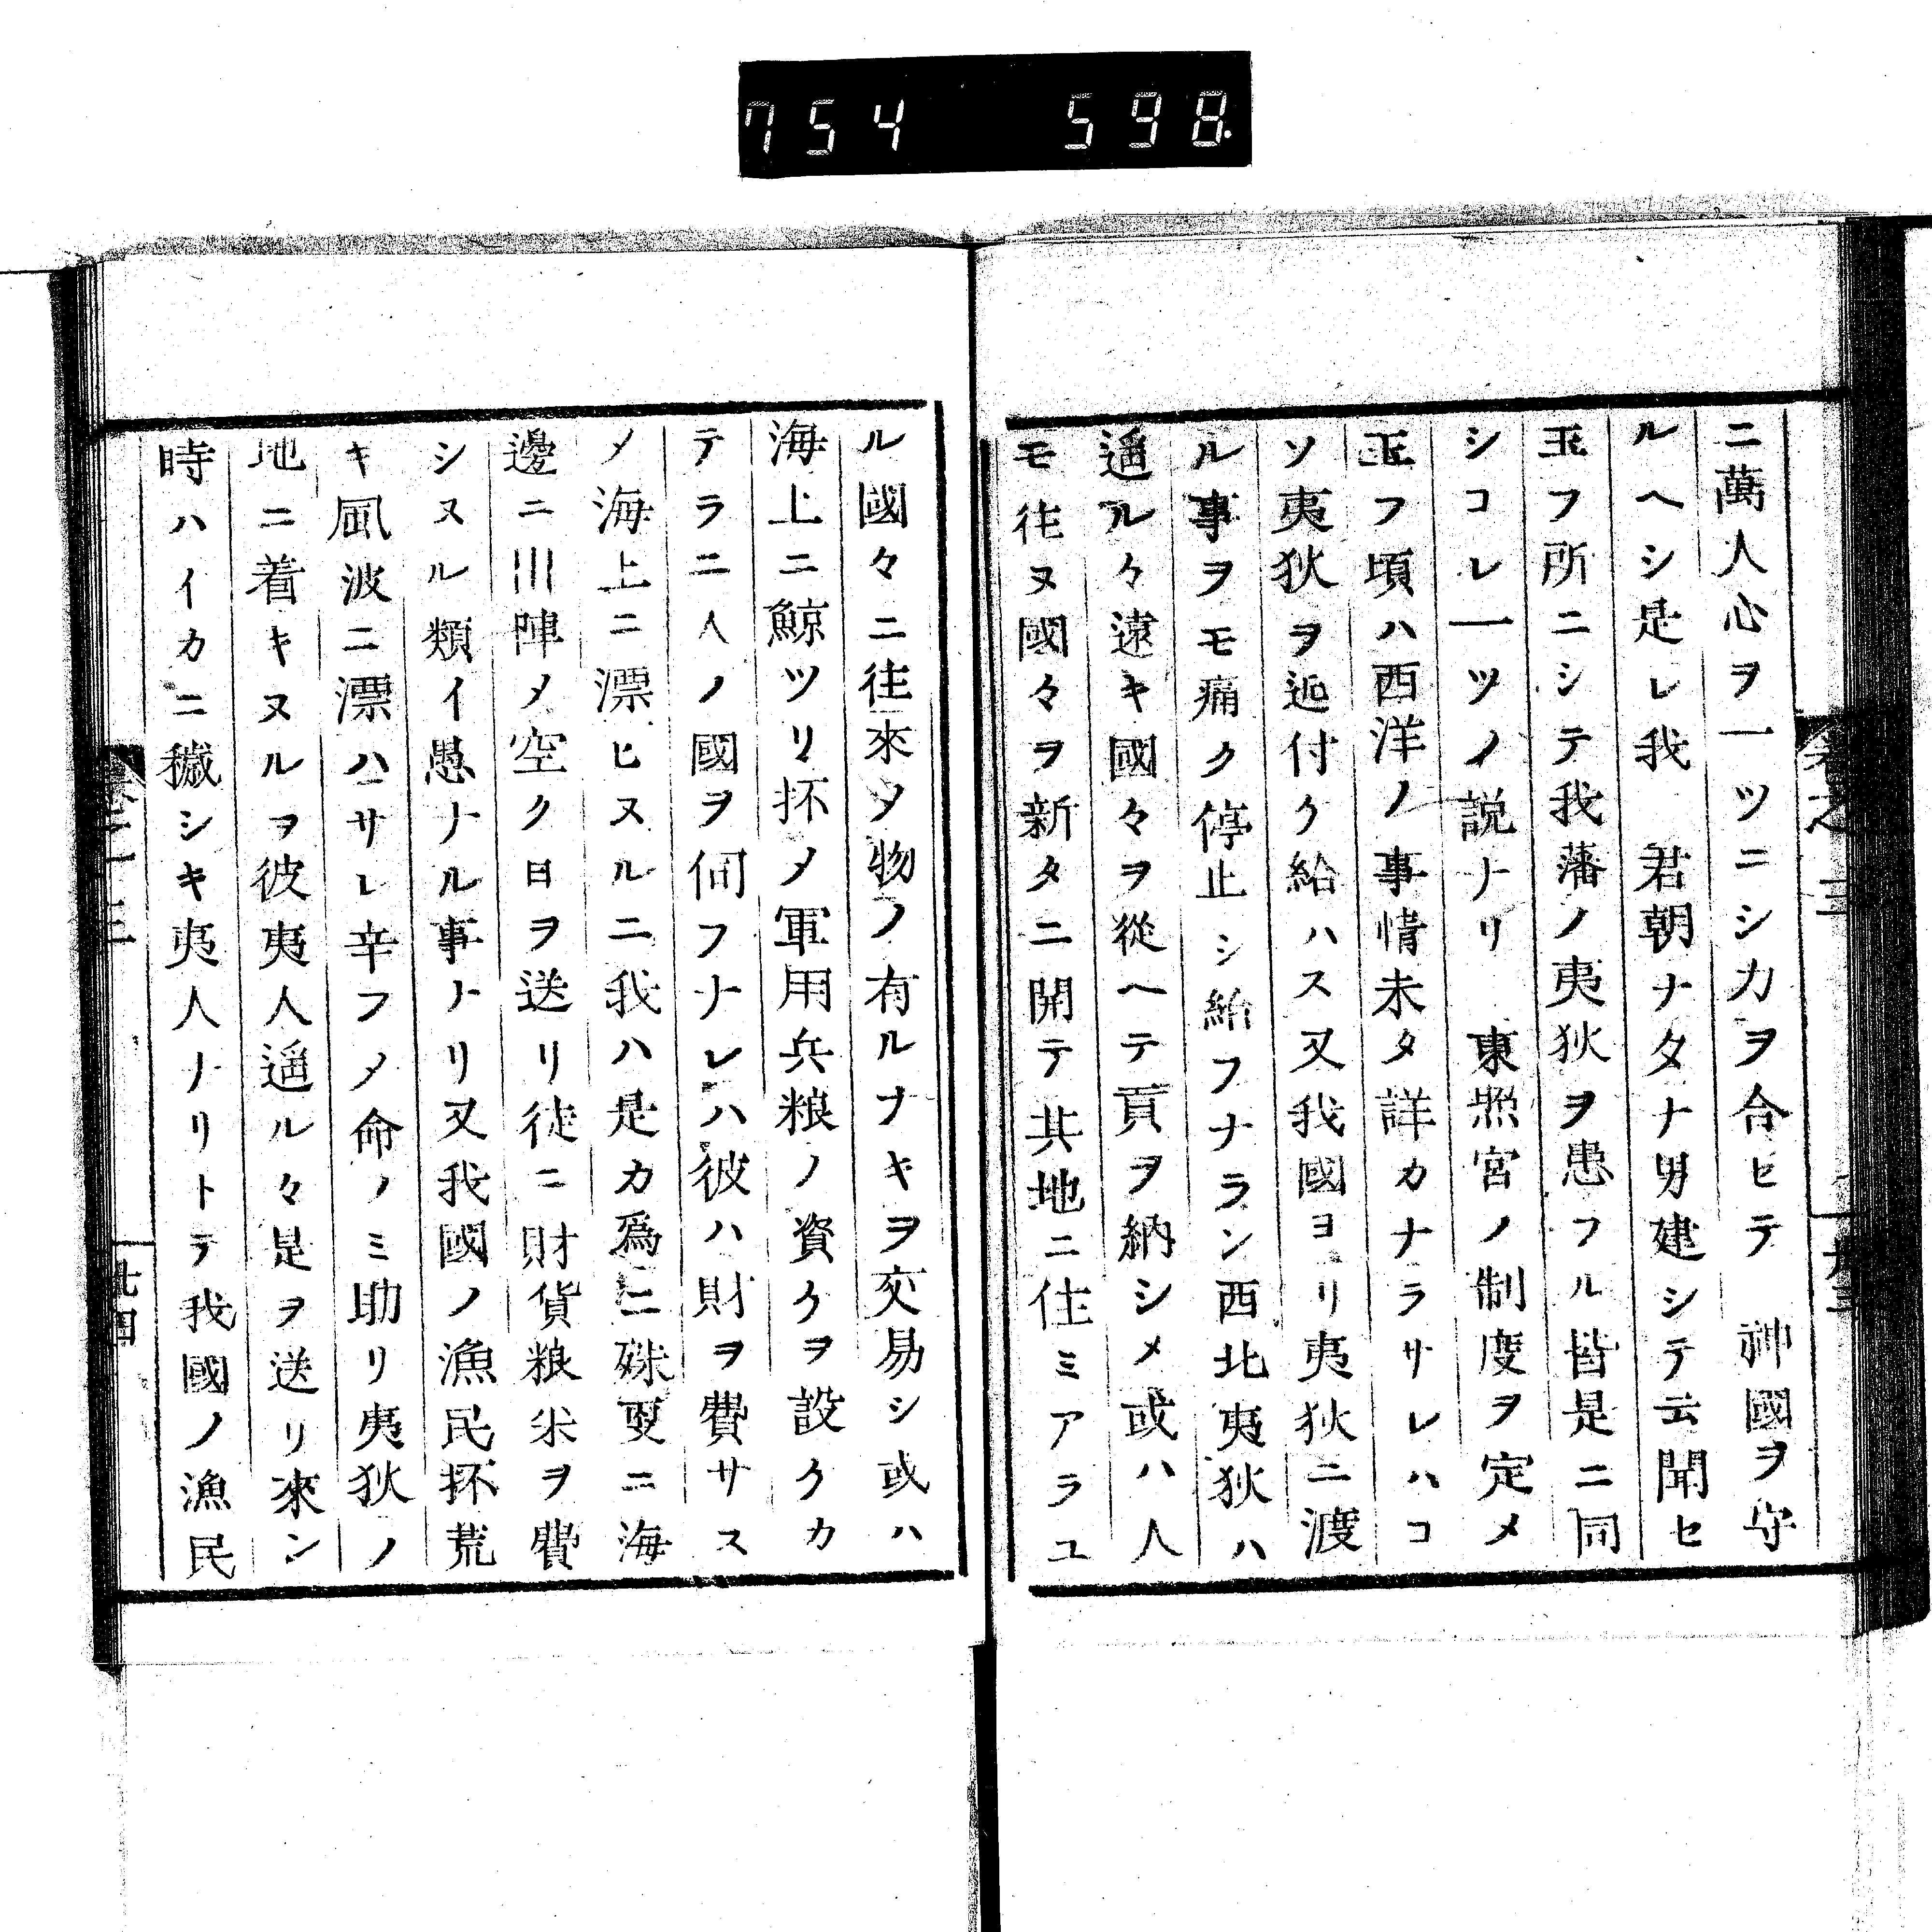 754 598
ニ萬人心ヲ一ツニシカヲ合ヒテ　神國ヲ守
ルヘシ是レ我　君朝ナタナ男建シテ云聞セ
玉フ所ニシテ我藩ノ夷狄ヲ患フル皆是ニ同
シコレ一ツノ説ナリ　東照宮ノ制度ヲ定メ
玉フ頃ハ西洋ノ事情未タ詳カナラサレハコ
ソ夷狄ヲ近付ク給ハス又我國ヨリ夷狄ニ渡
ル事ヲモ痛ク停止シ給フナラン西北夷狄ハ
遥ル々遠キ國々ヲ從ヘテ貢ヲ納シメ或ハ人
モ往ヌ國々ヲ新タニ開テ其地ニ住ミアラユ
ル國々ニ往來タ物ノ有ルナキヲ交易シ或ハ
海上ニ鯨ツリ抔メ軍用兵粮ノ資クヲ設クカ
テラニ人ノ國ヲ伺フナレハ彼ハ財ヲ費サス
メ海上ニ漂ヒヌルニ我ハ是カ爲ニ殊更ニ海
邊ニ川陣メ空ク日ヲ送リ徒ニ財貨粮米ヲ費
シヌル類イ愚ナル事トリ又我國ノ漁民抔荒
キ風波ニ漂ハサレ辛フメ命ノミ助リ夷狄ノ
地ニ着キヌルヲ彼夷人遥ル々是ヲ送リ來ン
時ハイカニ穢シキ夷人ナリトテ我國ノ漁民
卷之三
廿四